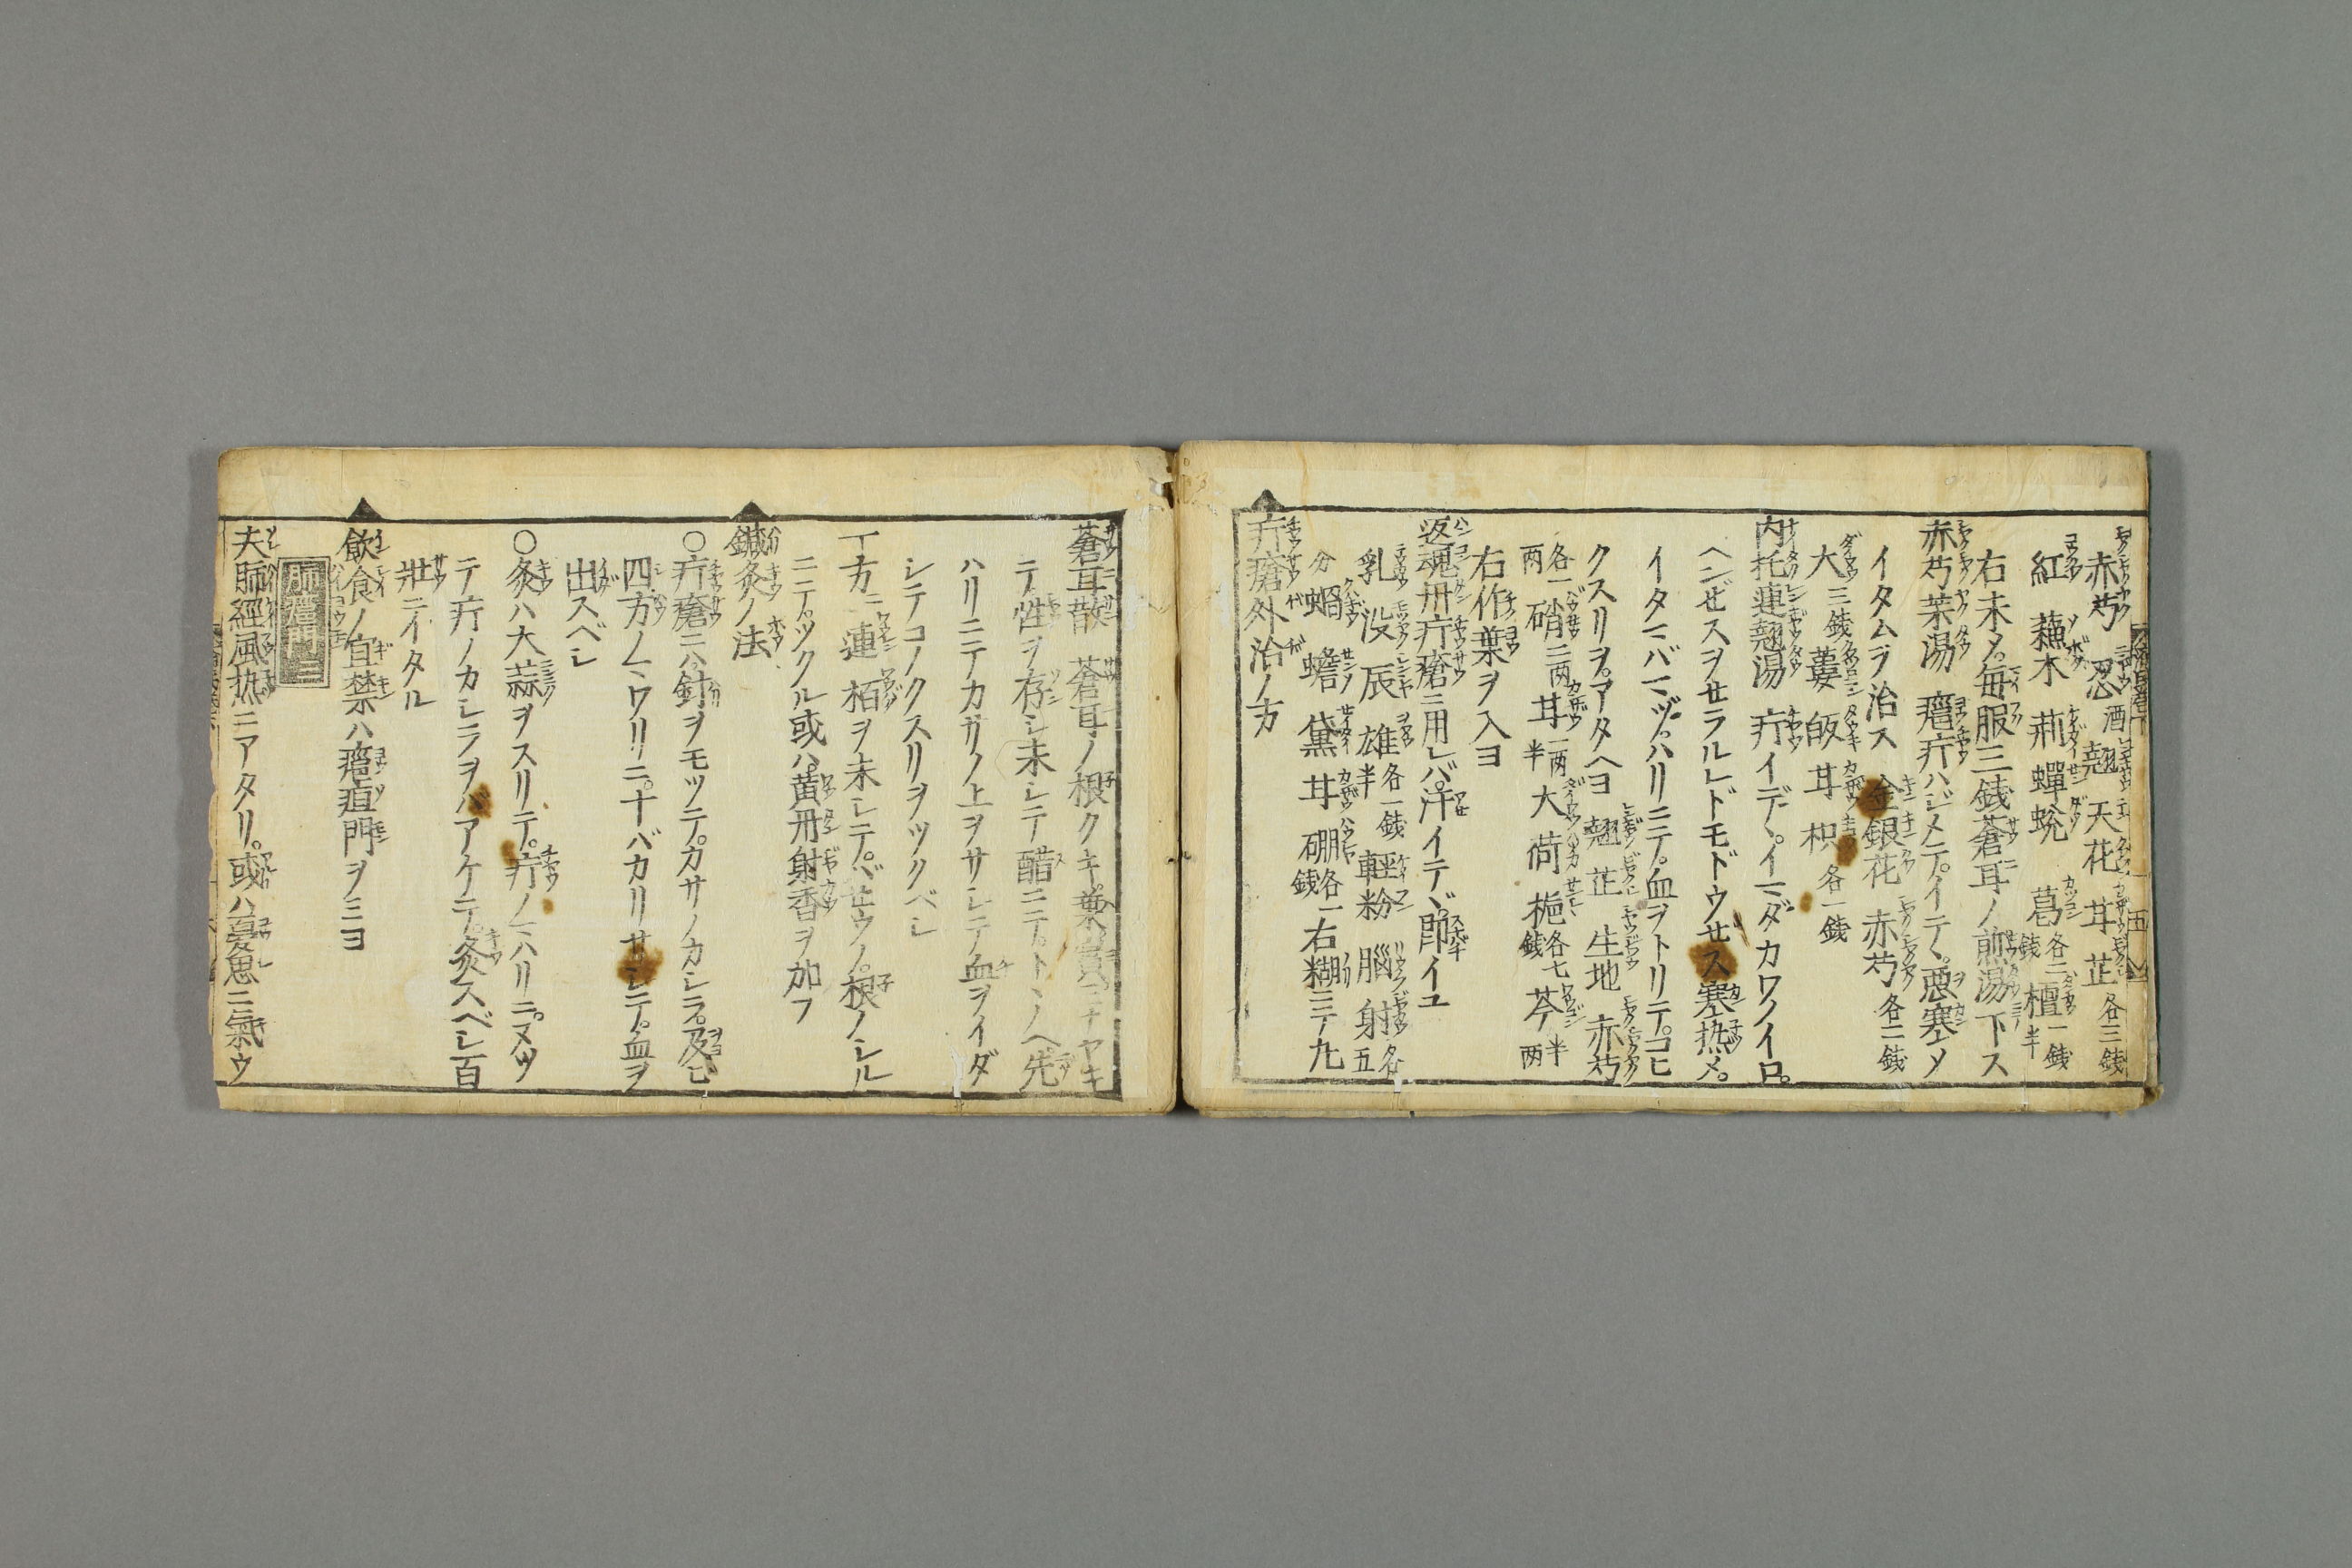 赤芍 忍酒 翹 天花 耳 芷各三銭
紅 蘓木 荊 蟬蛻 葛各二銭 檀一銭半
右末〆毎服三銭蒼耳ノ煎湯下ス
赤芍茱湯 癰疔ハジメテ。イテヽ。悪塞メ
イタムヲ治ス 金銀花 赤芍各二銭
大三銭 蔞 皈 耳 枳各一銭
内托連翹湯 疔イデヽ。イマダカワノイロ。
ヘンぜスヲせラルレドモドウせス塞热メ。
イタマバマヅ。ハリニテ。血ヲトリテ。コヒ
クスリヲ。アタヘヨ 翹 芷 生地 赤芍
各一両 硝二両 耳一両半 大 荷 梔各七銭 芩半両
右作葉ヲ入ヨ
返魂丹疔瘡ニ用レバ。汗イテヾ。即イユ
乳 没 辰 雄各一銭半 軽粉 腦 射各五
分 蝸 蟾 黛 耳 硼各一銭 右糊ニテ丸
疔瘡外治ノ方
蒼耳散 蒼耳ノ根クキ。葉。實ニナヤキ
テ。性ヲ存シ末シテ醋ニテ。トヽノヘ。先
ハリニテカガノ上ヲサレテ。血ヲイダ
シテコノクスリヲツクベシ
一方ニ連栢ヲ末シテ。バせウノ。根ノシル
ニテ。ツクル或ハ。黄丹射香ヲ加フ
鍼灸ノ法
○疔瘡ニハ針ヲモツテ。カサノカシラ。及ビ
四方〱ワリニ。十バカリサシテ。血ヲ
出スベシ
○灸ハ大蒜ヲスリテ。疔ノ〱ハリニ。ヌツ
テ疔ノカシラヲバアケテ。灸スベシ百
壯ニイタル
飲食ノ宜禁ハ癰疽門ヲミヨ
肺癰門三
夫肺經風热ニアタリ。或ハ憂恖ニ氣ウ